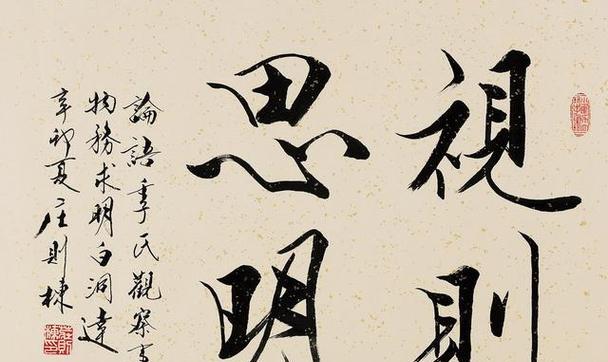 視則
思明
論語季氏觀察事
物務求明白洞達
辛卯夏庄則棟